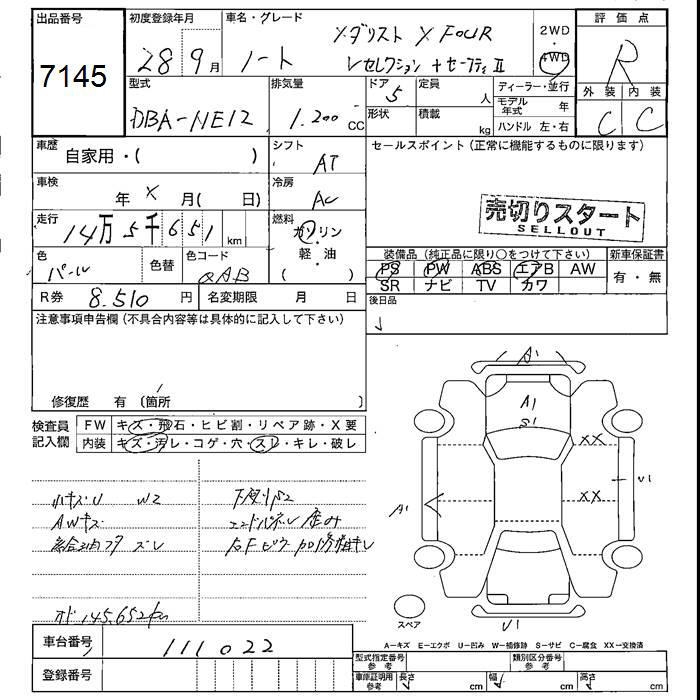 出品番号
7145
初度登録年月
28 9月
車名・グレード
ノート
メダリスト X FOUR
Vセレクション+セーフティⅡ
2WD
・
4WD
評価点
R
型式
DBA-NE12
排気量
1.200CC
ドア 5
定員 人
ディーラー・並行
モデル年式 年
形状
積載 kg
ハンドル 左・右
外装 内装
C C
車歴
自家用・( )
シフト
AT
セールスポイント(正常に機能するものに限ります)
車検
年 X 月( 日)
冷房
AC
売切りスタート
SELLOUT
走行
14万5千651km
燃料
ガソリン
・
軽・油
( )
色
パール
色替
色コード
QAB
装備品(純正品に限り○をつけて下さい)
新車保証書
PS PW ABS エアB AW
有・無
SR ナビ TV カワ
R券 8.510円
名変期限 月 日
後日品
注意事項申告欄(不具合内容等は具体的に記入して下さい)
修復歴 有(箇所 )
検査員
記入欄
FW キズ・飛石・ヒビ割・リペア跡・X要
内装 キズ・汚レ・コゲ・穴・スレ・キレ・破レ
小キズU W2
AWキズ
給油フタ ズレ
下廻りS2
エンドパネル 歪み
右Fピラー加修補修
オド 145.652km
A1
A1
S1
XX
XX
V1
A1
V1
スペア
A=キズ E=エクボ U=凹み W=補修跡 S=サビ C=腐食 XX=交換済
車台番号
111022
登録番号
型式指定番号
参考
類別区分番号
参考
車庫証明用
参考
長さ cm
幅 cm
高さ cm